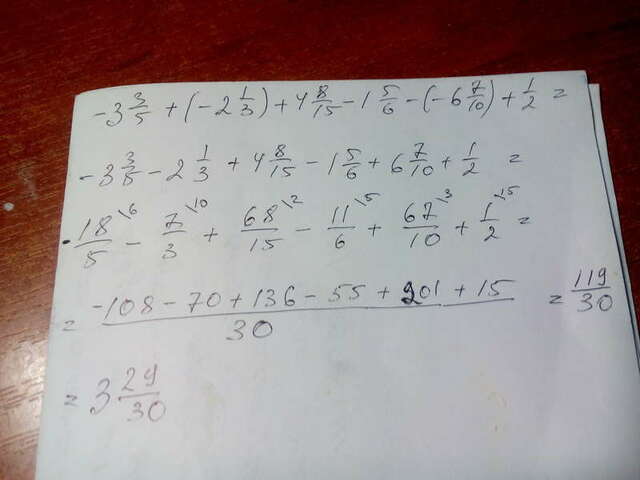 -3 3/5 + (-2 1/3) + 4 8/15 - 1 5/6 - (-6 7/10) + 1/2 =
-3 3/5 - 2 1/3 + 4 8/15 - 1 5/6 + 6 7/10 + 1/2 =
-18/5 \6 - 7/3 \10 + 68/15 \2 - 11/6 \5 + 67/10 \3 + 1/2 \15 =
= (-108 - 70 + 136 - 55 + 201 + 15)/30 = 119/30
= 3 29/30